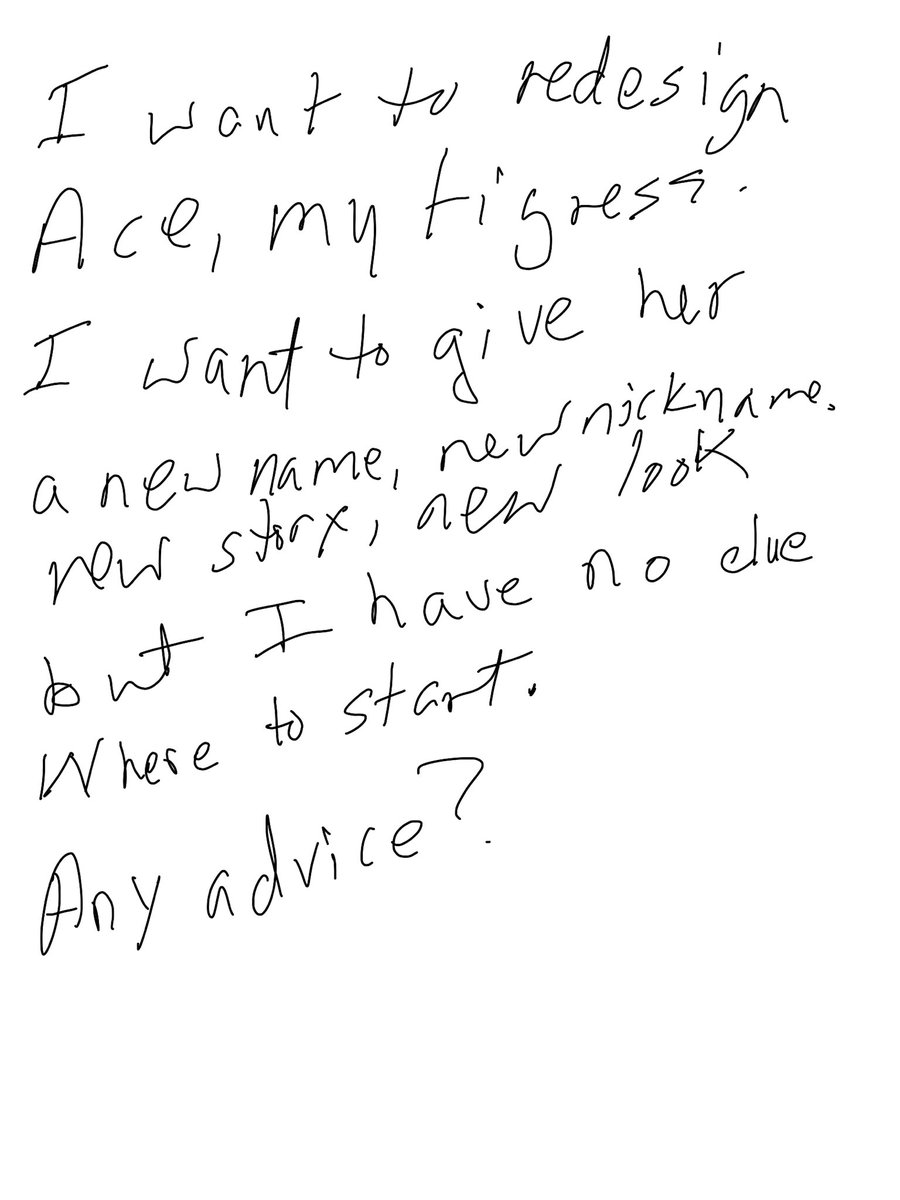 I want to redesign
Ace, my tigress.
I want to give her
a new name, new nickname.
new story, new look
but I have no clue
Where to start.
Any advice?